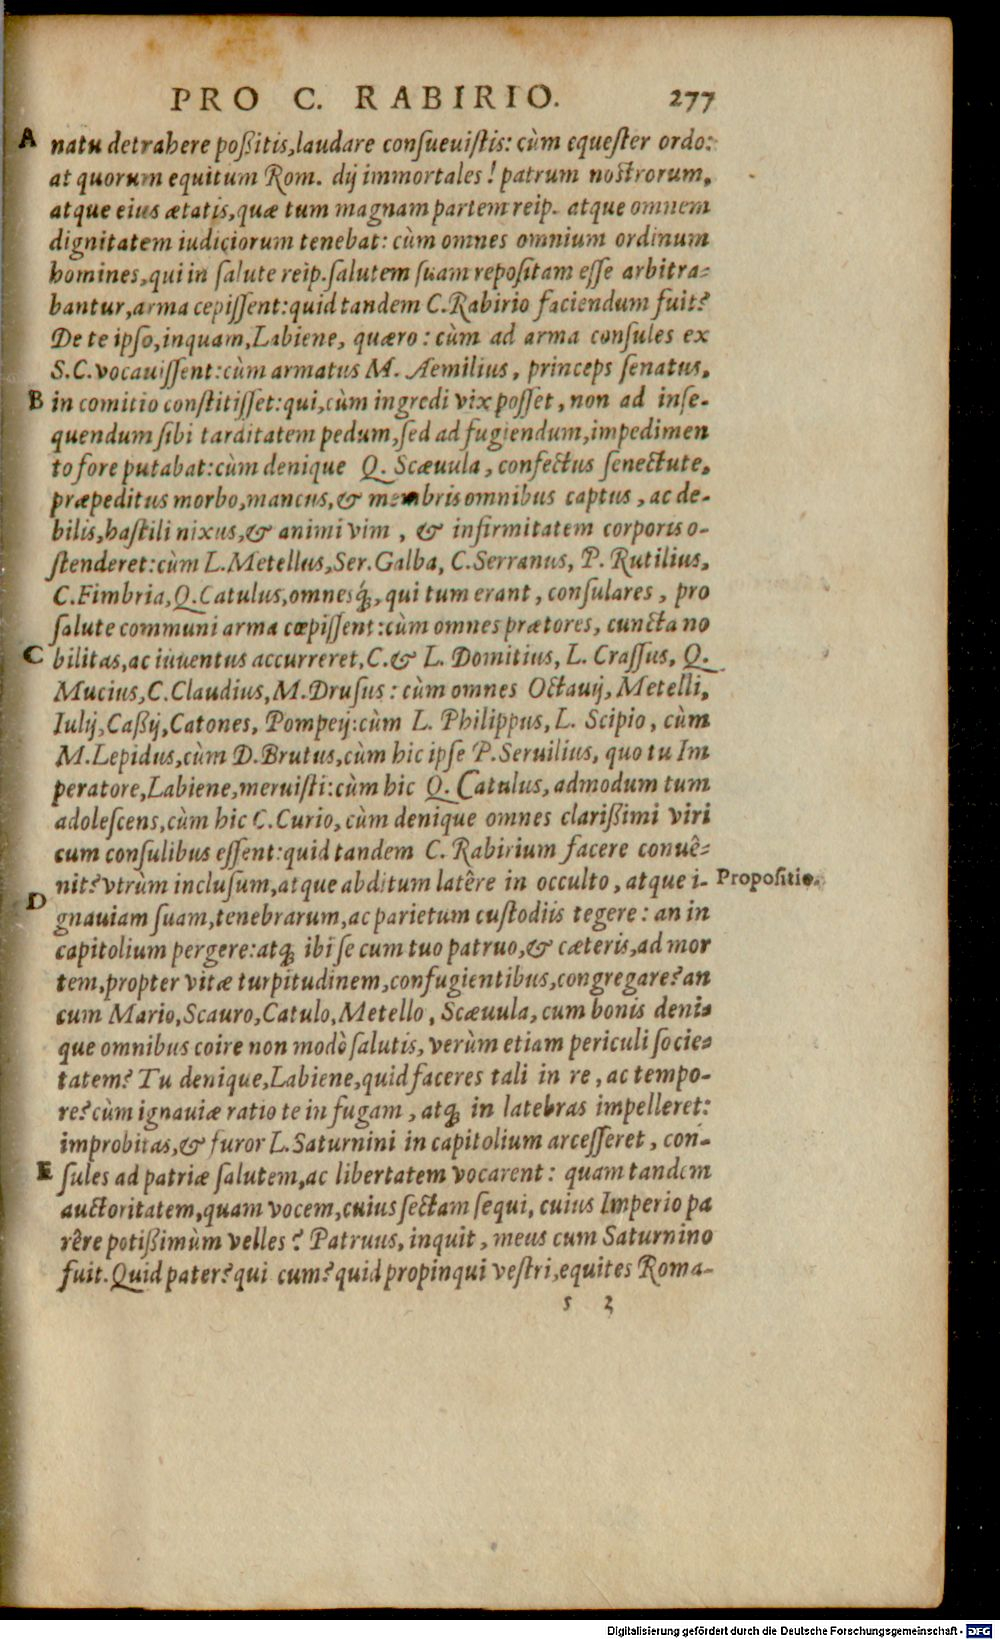 PRO C. RABIRIO. 277
A natu detrahere poßitis, laudare consueuistis: cùm equester ordo:
at quorum equitum Rom. dij immortales! patrum nostrorum,
atque eius ætatis, quæ tum magnam partem reip. atque omnem
dignitatem iudiciorum tenebat: cùm omnes omnium ordinum
homines, qui in salute reip. salutem suam repositam esse arbitra-
bantur, arma cepissent: quid tandem C. Rabirio faciendum fuit?
De te ipso, inquam, Labiene, quæro: cùm ad arma consules ex
S.C. vocauissent: cùm armatus M. Aemilius, princeps senatus,
B in comitio constitisset: qui, cùm ingredi vix posset, non ad inse-
quendum sibi tarditatem pedum, sed ad fugiendum, impedimen
to fore putabat: cùm denique Q. Scæuula, confectus senectute,
præpeditus morbo, mancus, & membris omnibus captus, ac de-
bilis, hastili nixus, & animi vim, & infirmitatem corporis o-
stenderet: cùm L. Metellus, Ser. Galba, C. Serranus, P. Rutilius,
C. Fimbria, Q. Catulus, omnesq́;, qui tum erant, consulares, pro
salute communi arma cœpissent: cùm omnes prætores, cuncta no
C bilitas, ac iuuentus accurreret, C. & L. Domitius, L. Crassus, Q.
Mucius, C. Claudius, M. Drusus: cùm omnes Octauij, Metelli,
Iulij, Caßij, Catones, Pompeij: cùm L. Philippus, L. Scipio, cùm
M. Lepidus, cùm D. Brutus, cùm hic ipse P. Seruilius, quo tu Im
peratore, Labiene, meruisti: cùm hic Q. Catulus, admodum tum
adolescens, cùm hic C. Curio, cùm denique omnes clarißimi viri
cum consulibus essent: quid tandem C. Rabirium facere conuê-
nit? vtrùm inclusum, atque abditum latêre in occulto, atque i- Propositio.
D gnauiam suam, tenebrarum, ac parietum custodiis tegere: an in
capitolium pergere: atq; ibi se cum tuo patruo, & cæteris, ad mor
tem, propter vitæ turpitudinem, confugientibus, congregare? an
cum Mario, Scauro, Catulo, Metello, Scæuula, cum bonis deni-
que omnibus coire non modò salutis, verùm etiam periculi socie-
tatem? Tu denique, Labiene, quid faceres tali in re, ac tempo-
re? cùm ignauiæ ratio te in fugam, atq; in latebras impelleret:
improbitas, & furor L. Saturnini in capitolium arcesseret, con-
E sules ad patriæ salutem, ac libertatem vocarent: quam tandem
auctoritatem, quam vocem, cuius sectam sequi, cuius Imperio pa
rêre potißimùm velles? Patruus, inquit, meus cum Saturnino
fuit. Quid pater? qui cum? quid propinqui vestri, equites Roma-
s 3
Digitalisierung gefördert durch die Deutsche Forschungsgemeinschaft - DFG